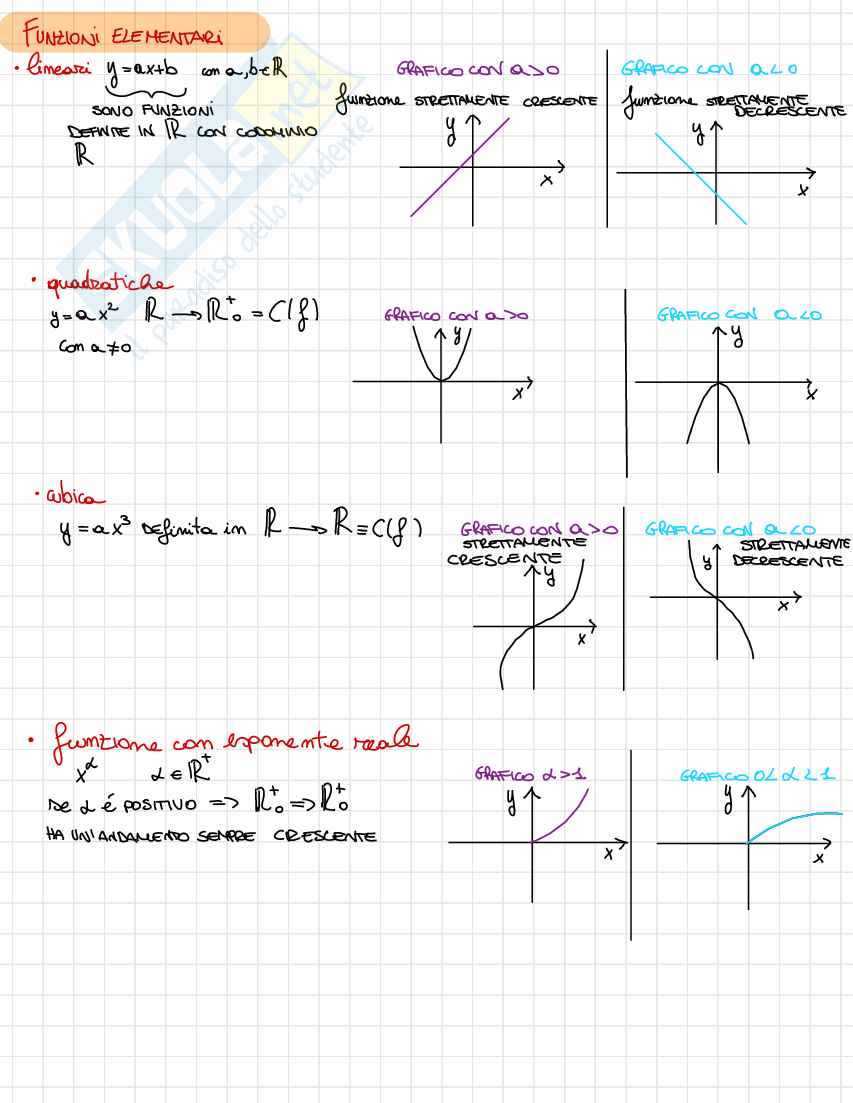 FUNZIONI ELEMENTARI
• lineari y=ax+b con a,b∈ℝ
SONO FUNZIONI
DEFINITE IN ℝ CON CODOMINIO
ℝ
GRAFICO CON a>0
funzione STRETTAMENTE CRESCENTE
y
x
GRAFICO CON a<0
funzione STRETTAMENTE
DECRESCENTE
y
x
SKUOLA.net
il paradiso dello studente
• quadratiche
y=ax² ℝ → ℝ₀⁺ = C(f)
con a≠0
GRAFICO CON a>0
y
x
GRAFICO CON a<0
y
x
• cubica
y=ax³ DEFINITA in ℝ → ℝ ≡ C(f)
GRAFICO CON a>0
STRETTAMENTE
CRESCENTE
y
x
GRAFICO CON a<0
STRETTAMENTE
DECRESCENTE
y
x
• funzione con esponente reale
x^α α∈ℝ⁺
SE α é POSITIVO => ℝ₀⁺ => ℝ₀⁺
HA UN'ANDAMENTO SEMPRE CRESCENTE
GRAFICO α>1
y
x
GRAFICO 0<α<1
y
x